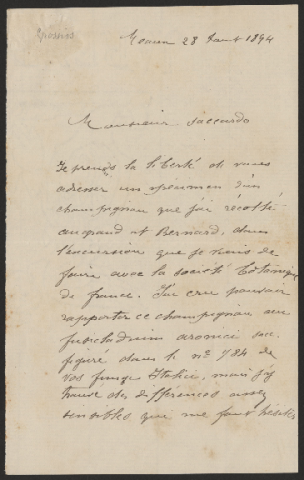 Meaux 28 Aout 1894
Monsieur Saccardo
Je prends la liberté de vous
adresser un specimen d'un
champignon que j'ai récolté
au grand St Bernard, dans
l'excursion que je viens de
faire avec la société botanique
de france. J'ai cru pouvoir
rapporter ce champignon au
fusicladium aronici sac.
figuré dans le no 784 de
vos fungi Italici, mais j'y
trouve des différences assez
sensibles que me font hésiter